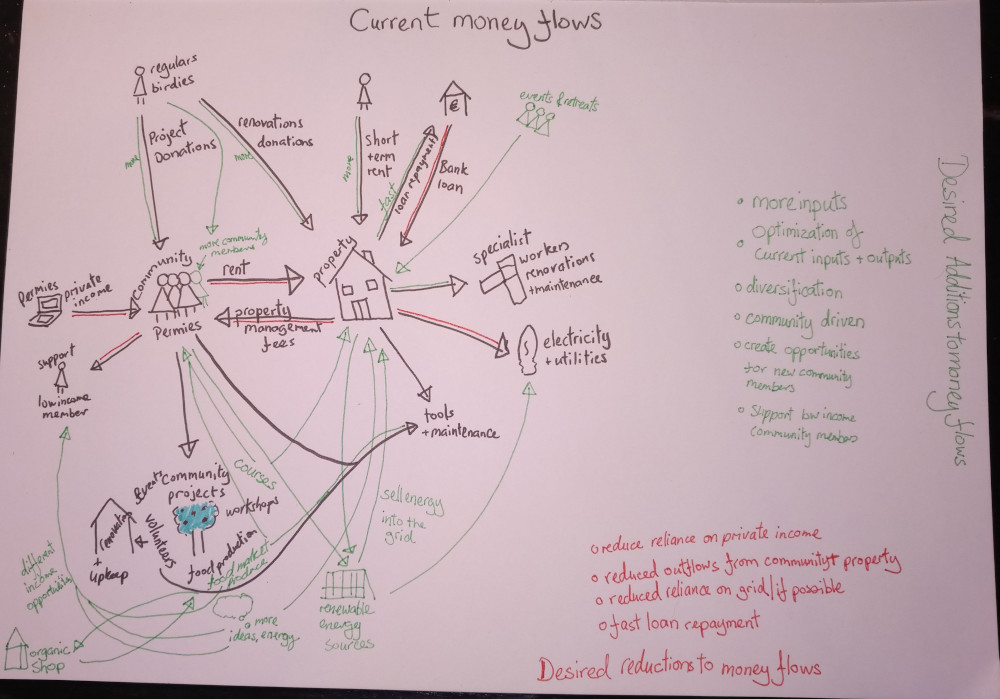 Current money flows
regulars
birdies
Project
Donations
more
renovations
donations
more
Short
term
rent
more
fast
loan repayment
€
Bank
loan
events & retreats
more community
members
community
Permies
Permies
private
income
rent
property
management
fees
property
specialist
workers
renovations
+maintenance
electricity
+utilities
support
low income
member
tools
+maintenance
courses
events
community
projects
workshops
volunteers
renovations
+
upkeep
food production
food market
produce
sell energy
into the
grid
different
income
opportunities
more
ideas, energy
renewable
energy
sources
organic
shop
Desired Additions to money flows
more inputs
Optimization of
Current inputs + outputs
diversification
community driven
create opportunities
for new community
members
Support low income
community members
reduce reliance on private income
reduced outflows from community+ property
reduced reliance on grid/if possible
fast loan repayment
Desired reductions to money flows